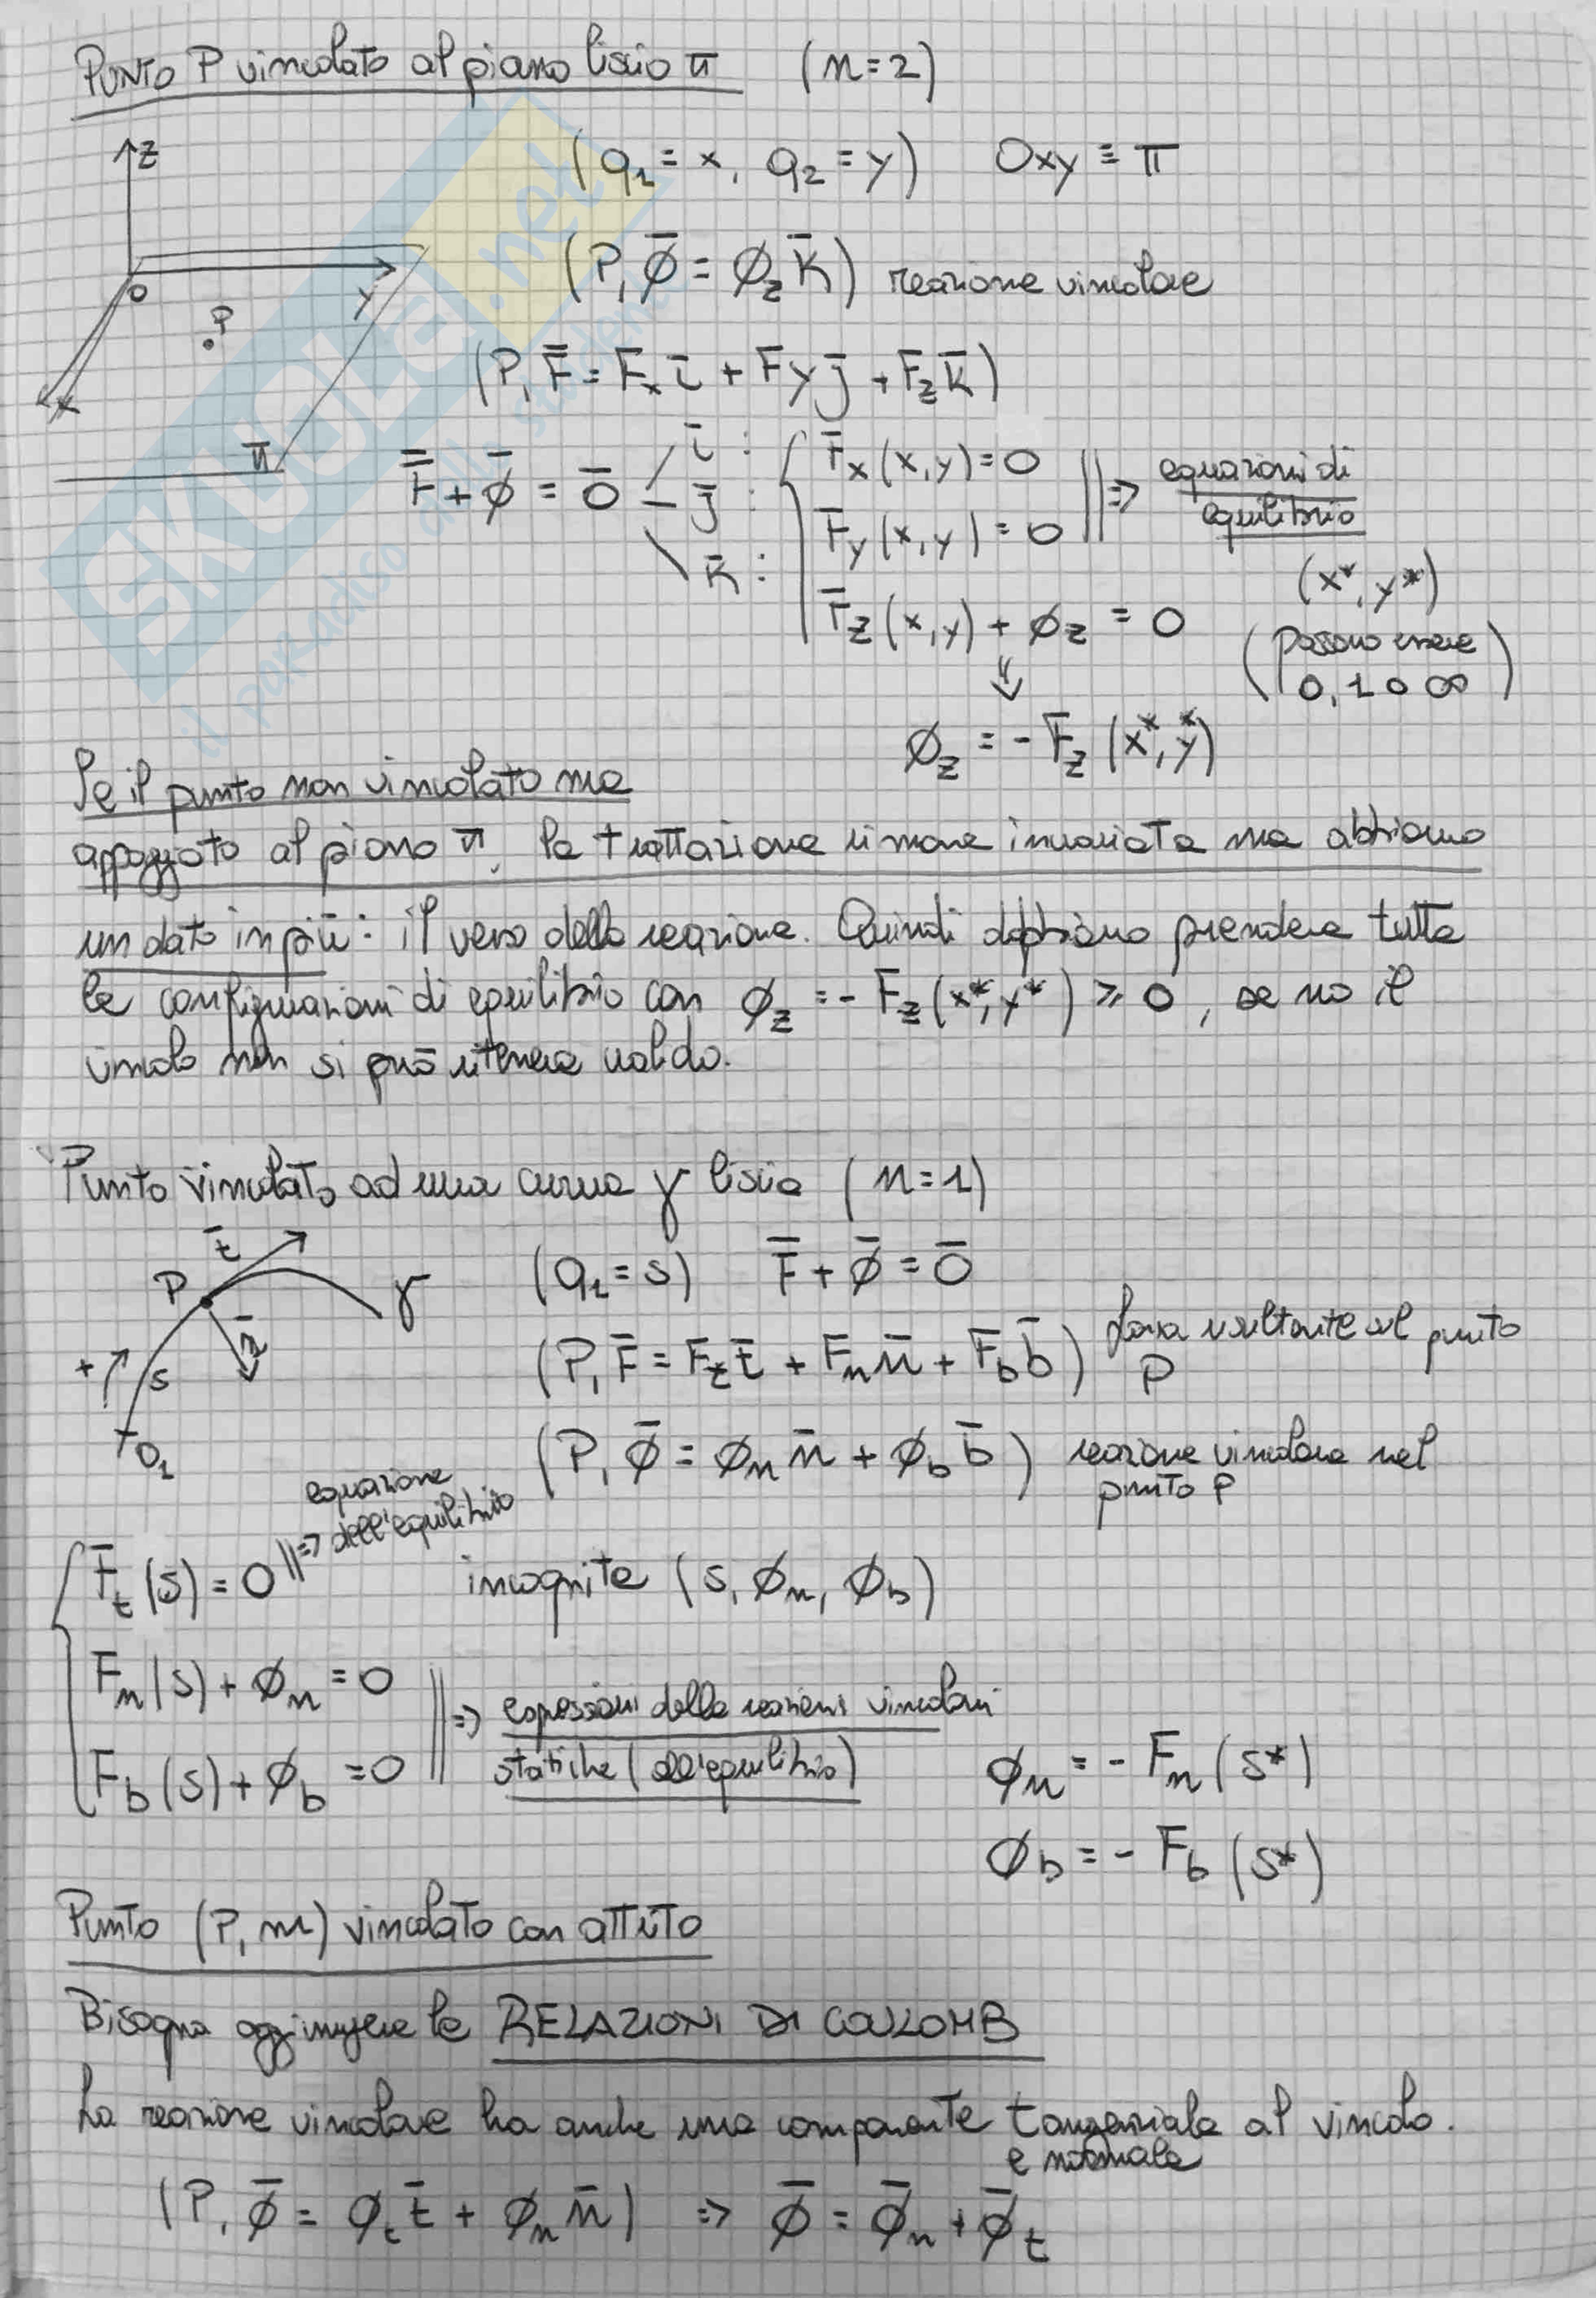 Punto P vincolato al piano liscio π (n=2)
z
(q₁ = x, q₂ = y) Oxy ≡ π
(P, Φ̄ = Φz k̄) reazione vincolare
O
y
P
x
(P, F̄ = Fx ī + Fy j̄ + Fz k̄)
π
F̄ + Φ̄ = 0̄
ī : Fx(x,y) = 0
j̄ : Fy(x,y) = 0
||⇒ equazioni di
equilibrio
k̄ : Fz(x,y) + Φz = 0
(x*, y*)
(possono essere
0, 1 o ∞)
↓
Φz = - Fz (x*, y*)
Se il punto non vincolato ma
appoggiato al piano π, la trattazione rimane invariata ma abbiamo
un dato in più: il verso della reazione. Quindi dobbiamo prendere tutte
le configurazioni di equilibrio con Φz = - Fz(x*, y*) ≥ 0, se no il
vincolo non si può ritenere valido.
Punto vincolato ad una curva γ liscia (n=1)
t̄
P
γ
n̄
+
s
O₁
(q₁ = s) F̄ + Φ̄ = 0̄
(P, F̄ = Ft t̄ + Fn n̄ + Fb b̄) forza risultante sul punto
P
(P, Φ̄ = Φn n̄ + Φb b̄) reazione vincolare nel
punto P
equazione
dell'equilibrio
Ft(s) = 0 ||⇒
incognite (s, Φn, Φb)
Fn(s) + Φn = 0
Fb(s) + Φb = 0
||⇒ espressioni delle reazioni vincolari
statiche (all'equilibrio)
Φn = - Fn(s*)
Φb = - Fb(s*)
Punto (P, m) vincolato con attrito
Bisogna aggiungere le RELAZIONI DI COULOMB
La reazione vincolare ha anche una componente tangenziale al vincolo.
e normale
(P, Φ̄ = Φt t̄ + Φn n̄) ⇒ Φ̄ = Φ̄n + Φ̄t
SKUOLA.net
il paradiso dello studente